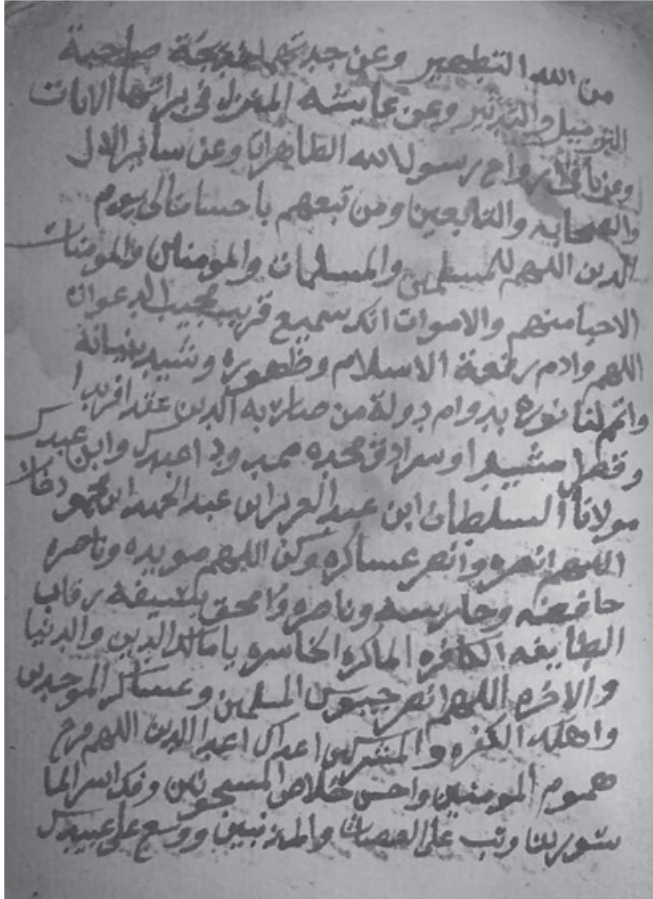 من الله التطهير وعن جدتهم خديجة صاحبة
التبتيل والتدثير وعن عايشه المنزل في براتها الايات
وعن باقي ازواج رسول الله الطاهرات وعن ساير الال
والصحابه والتابعين ومن تبعهم باحسان الى يوم
الدين اللهم للمسلمين والمسلمات والمومنين والمومنات
الاحيا منهم والاموات انك سميع قريب مجيب الدعوات
اللهم وادم رفعة الاسلام وظهوره وتشييد بنيانه
واتم لنا نوره بدوام دولة من صار به الدين عقدا فريدا
وقصرا مشيدا وسرادق مجده ممدودا عبدك وابن عبدك
مولانا السلطان ابن عبد العزيز ابن عبد الحميد ابن محمود
اللهم انصره وانصر عساكره وكن اللهم مويده وناصره
حافضه وحارسه وناصره وامحق بسيفه رقاب
الطايفه الكافره الماكره الخاسره يا مالك الدين والدنيا
والاخره اللهم انصر جيوش المسلمين وعساكر الموحدين
واهلك الكفره والمشركين اعداك اعدا الدين اللهم فرج
هموم المومنين واحسن خلاص المسجونين وفك اسر الما
سورين وتب على العصات والمذنبين ووسع على عبيدك